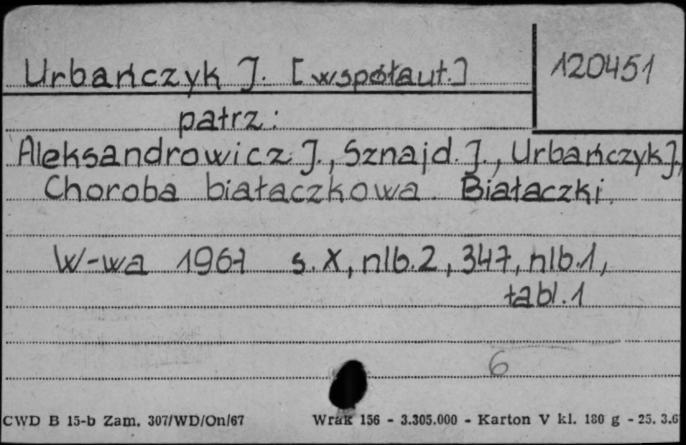 Urbańczyk J. [współaut.]
120451
patrz:
Aleksandrowicz J., Sznajd J., Urbańczyk J.,
Choroba białaczkowa. Białaczki.
W-wa 1967 s. X, nlb. 2, 347, nlb. 1,
tabl. 1
6
CWD B 15-b Zam. 307/WD/On/67 Wrak 156 - 3.305.000 - Karton V kl. 180 g - 25. 3.6